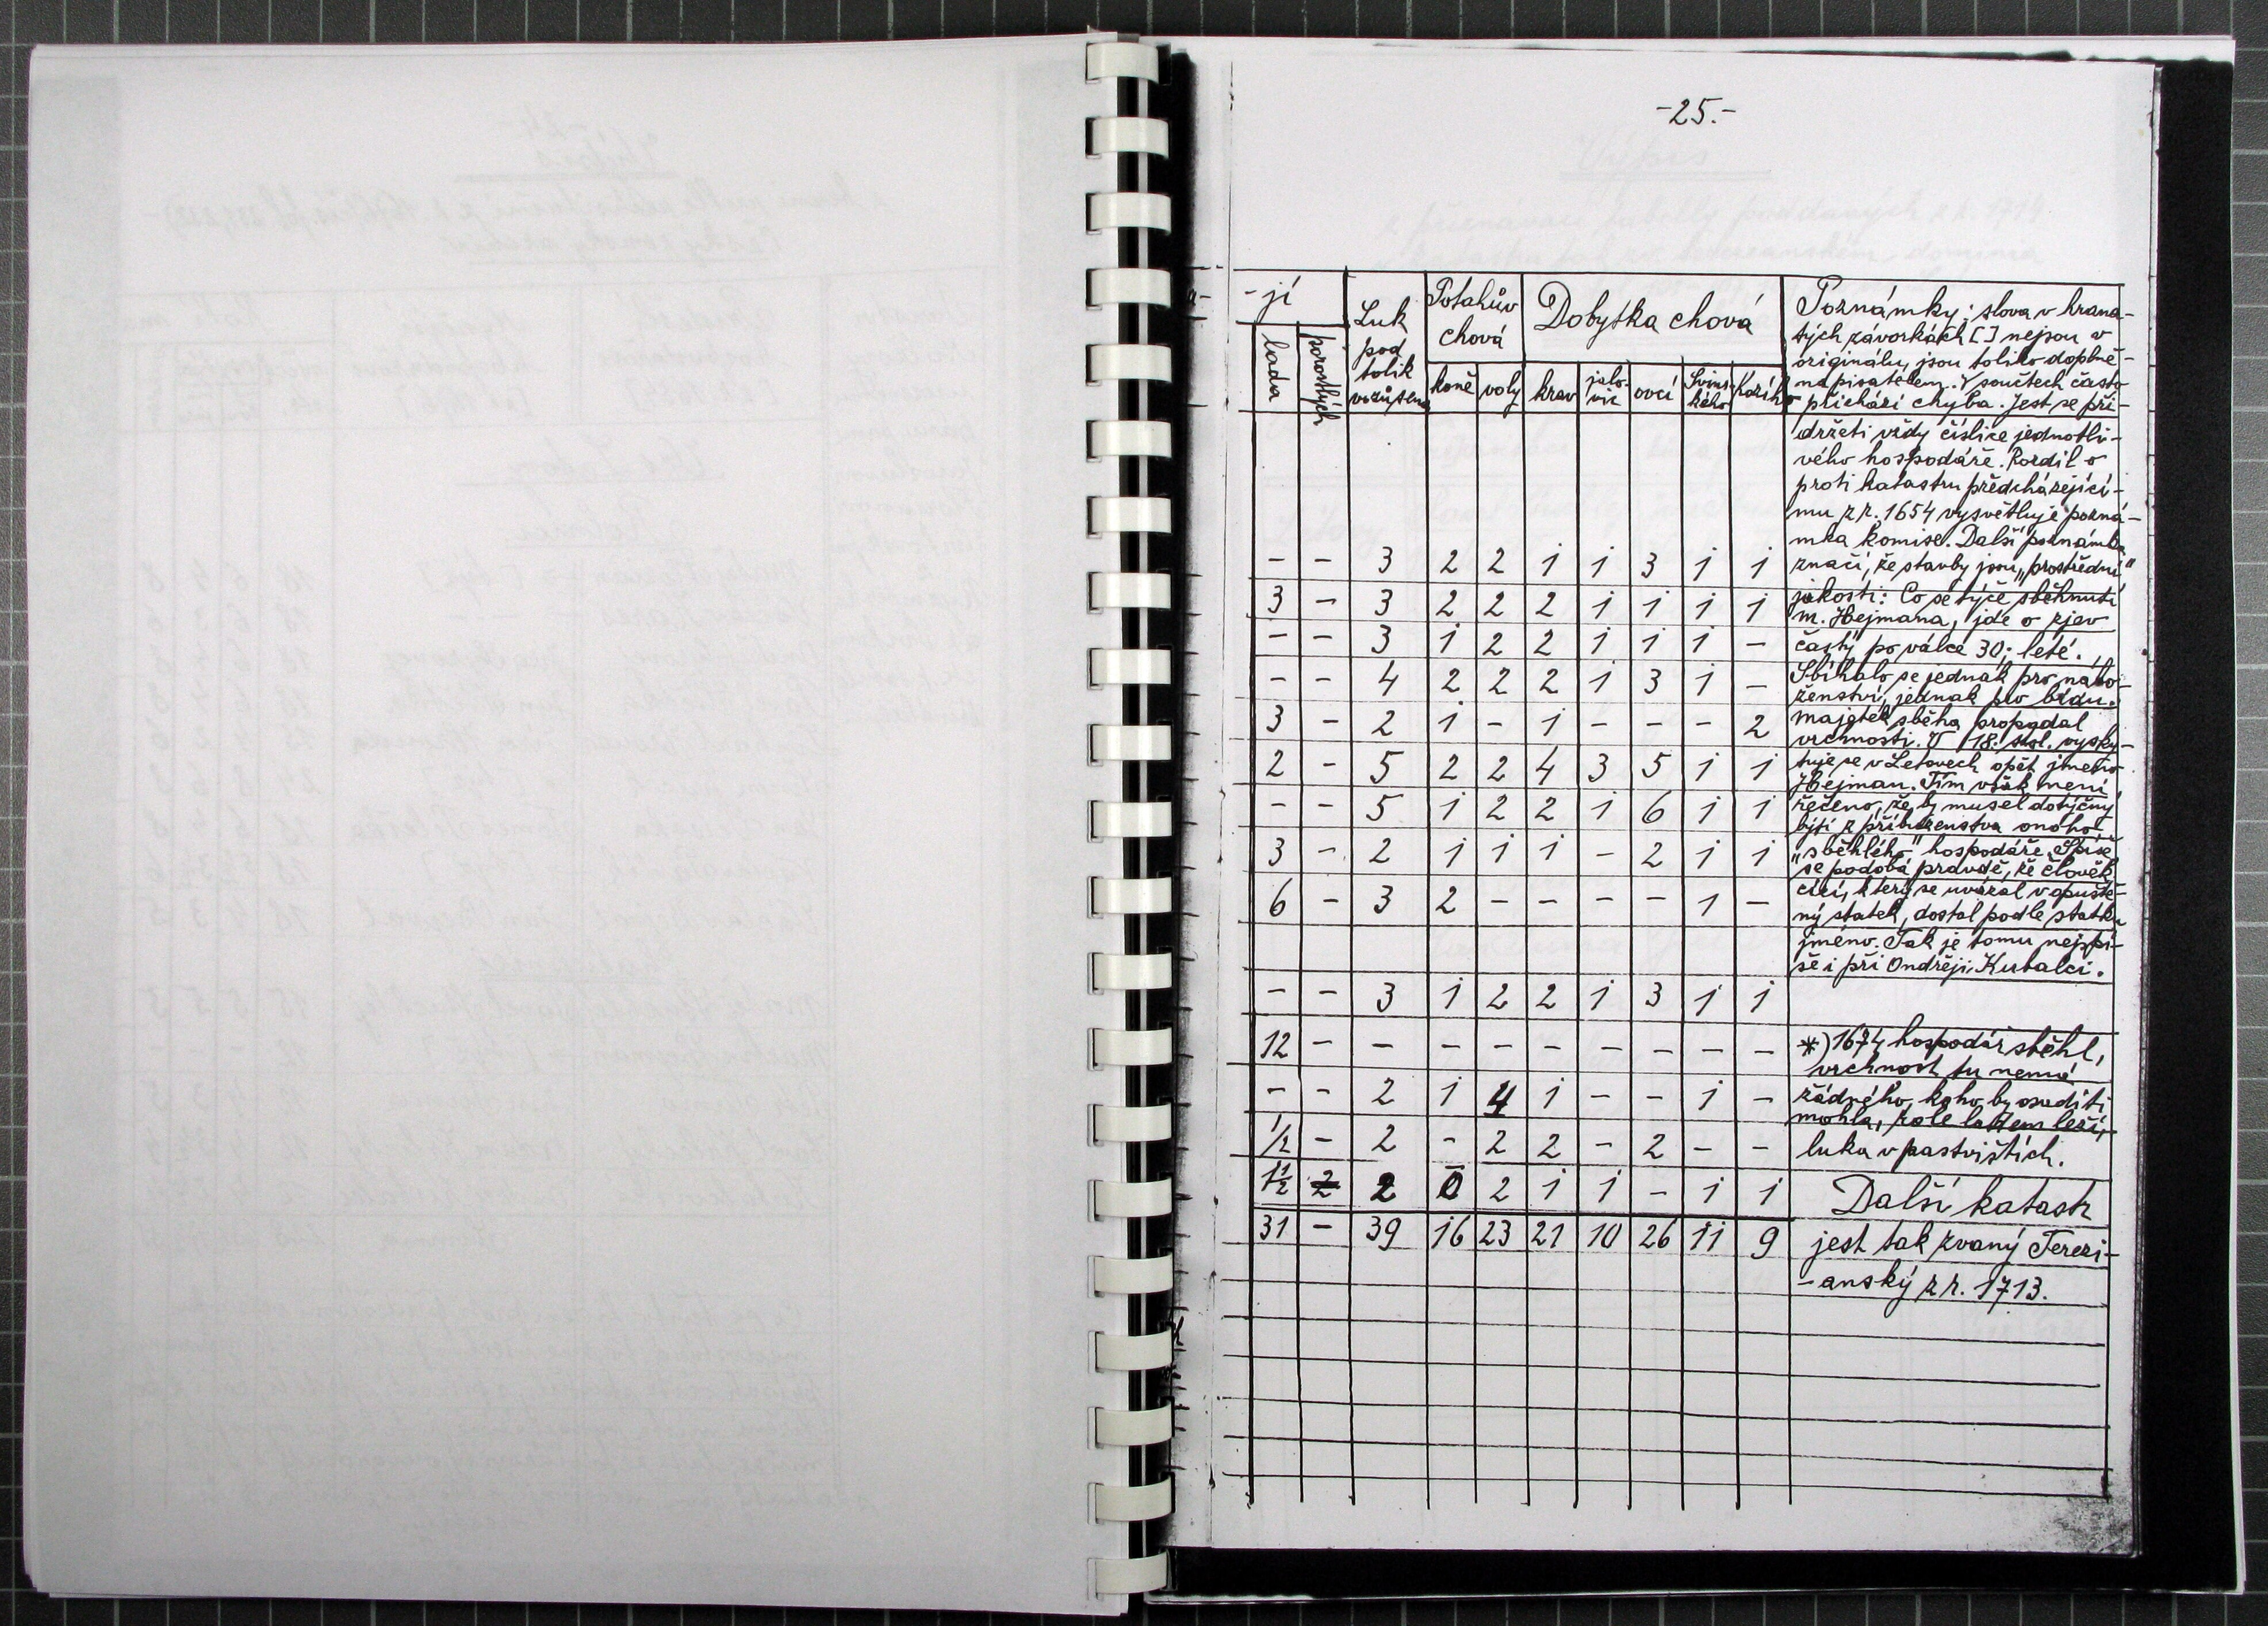 -25.-
-jí
Luk pod tolik vozů sena
Potahův chová
Dobytka chová
lada
porostlých
koně
voly
krav
jalo-vic
ovcí
Svins-kého
Kozího
- - 3 2 2 1 1 3 1 1
3 - 3 2 2 2 1 1 1 1
- - 3 1 2 2 1 1 1 -
- - 4 2 2 2 1 3 1 -
3 - 2 1 - 1 - - - 2
2 - 5 2 2 4 3 5 1 1
- - 5 1 2 2 1 6 1 1
3 - 2 1 1 1 - 2 1 1
6 - 3 2 - - - - 1 -
- - 3 1 2 2 1 3 1 1
12 - - - - - - - - -
- - 2 1 4 1 - - 1 -
1/2 - 2 - 2 2 - 2 - -
1 1/2 2 0 2 1 1 - 1 1
31 - 39 16 23 21 10 26 11 9
Poznámky: slova v hrana-
tých závorkách [] nejsou v
originálu, jsou toliko doplně-
na pisatelem. V součtech často
přichází chyba. Jest se při-
držeti vždy číslice jednotli-
vého hospodáře. Rozdíl o
proti katastru předcházející-
mu z r. 1654 vysvětluje pozná-
mka komise. Další poznámka
značí, že stavby jsou „prostřední"
jakosti: Co se týče sběhnutí
m. Hejmana, jde o zjev
častý po válce 30; leté.
Sbíhalo se jednak pro nábo-
ženství, jednak pro bídu.
majetek sběha propadal
vrchnosti. V 18. stol. vysky-
tuje se v Letovech opět jméno
Hejman. Tím však není
řečeno, že by musel dotyčný
býti z příbuzenstva onoho
„sběhlého" hospodáře. Spíše
se podobá pravdě, že člověk
cizí, který se uvázal v opuště-
ný statek, dostal podle statku
jméno. Tak je tomu nejspí-
še i při Ondřeji Kubalci.
*) 1674 hospodář sběhl,
vrchnost tu nemá
žádného, koho by osaditi
mohla, pole ladem leží,
luka v pastvištích.
Další katastr
jest tak zvaný Terezi-
-anský z r. 1713.